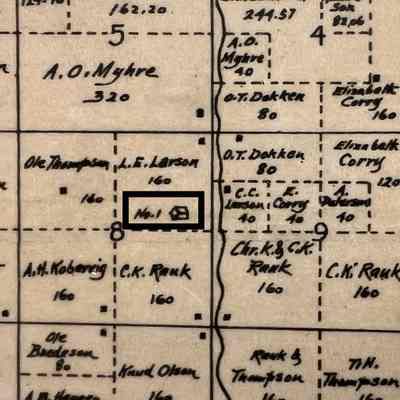 162.20
5
A.O. Myhre
320
244.57
82.06
4
A.O.
Myhre
40
O.T. Dokken
80
Elizabeth
Corry
160
Ole Thompson
160
L.E. Larson
160
No.1
O.T. Dokken
80
Elizabeth
Corry
120
C.C.
Larson
40
E.
Corry
40
A.
Peterson
40
8
9
A.H. Koberrig
160
C.K. Rauk
160
Chr. K. & C.K.
Rauk
160
C.K. Rauk
160
Ole
Bredeson
80
Knud Olson
160
Rauk &
Thompson
160
T.H.
Thompson
160